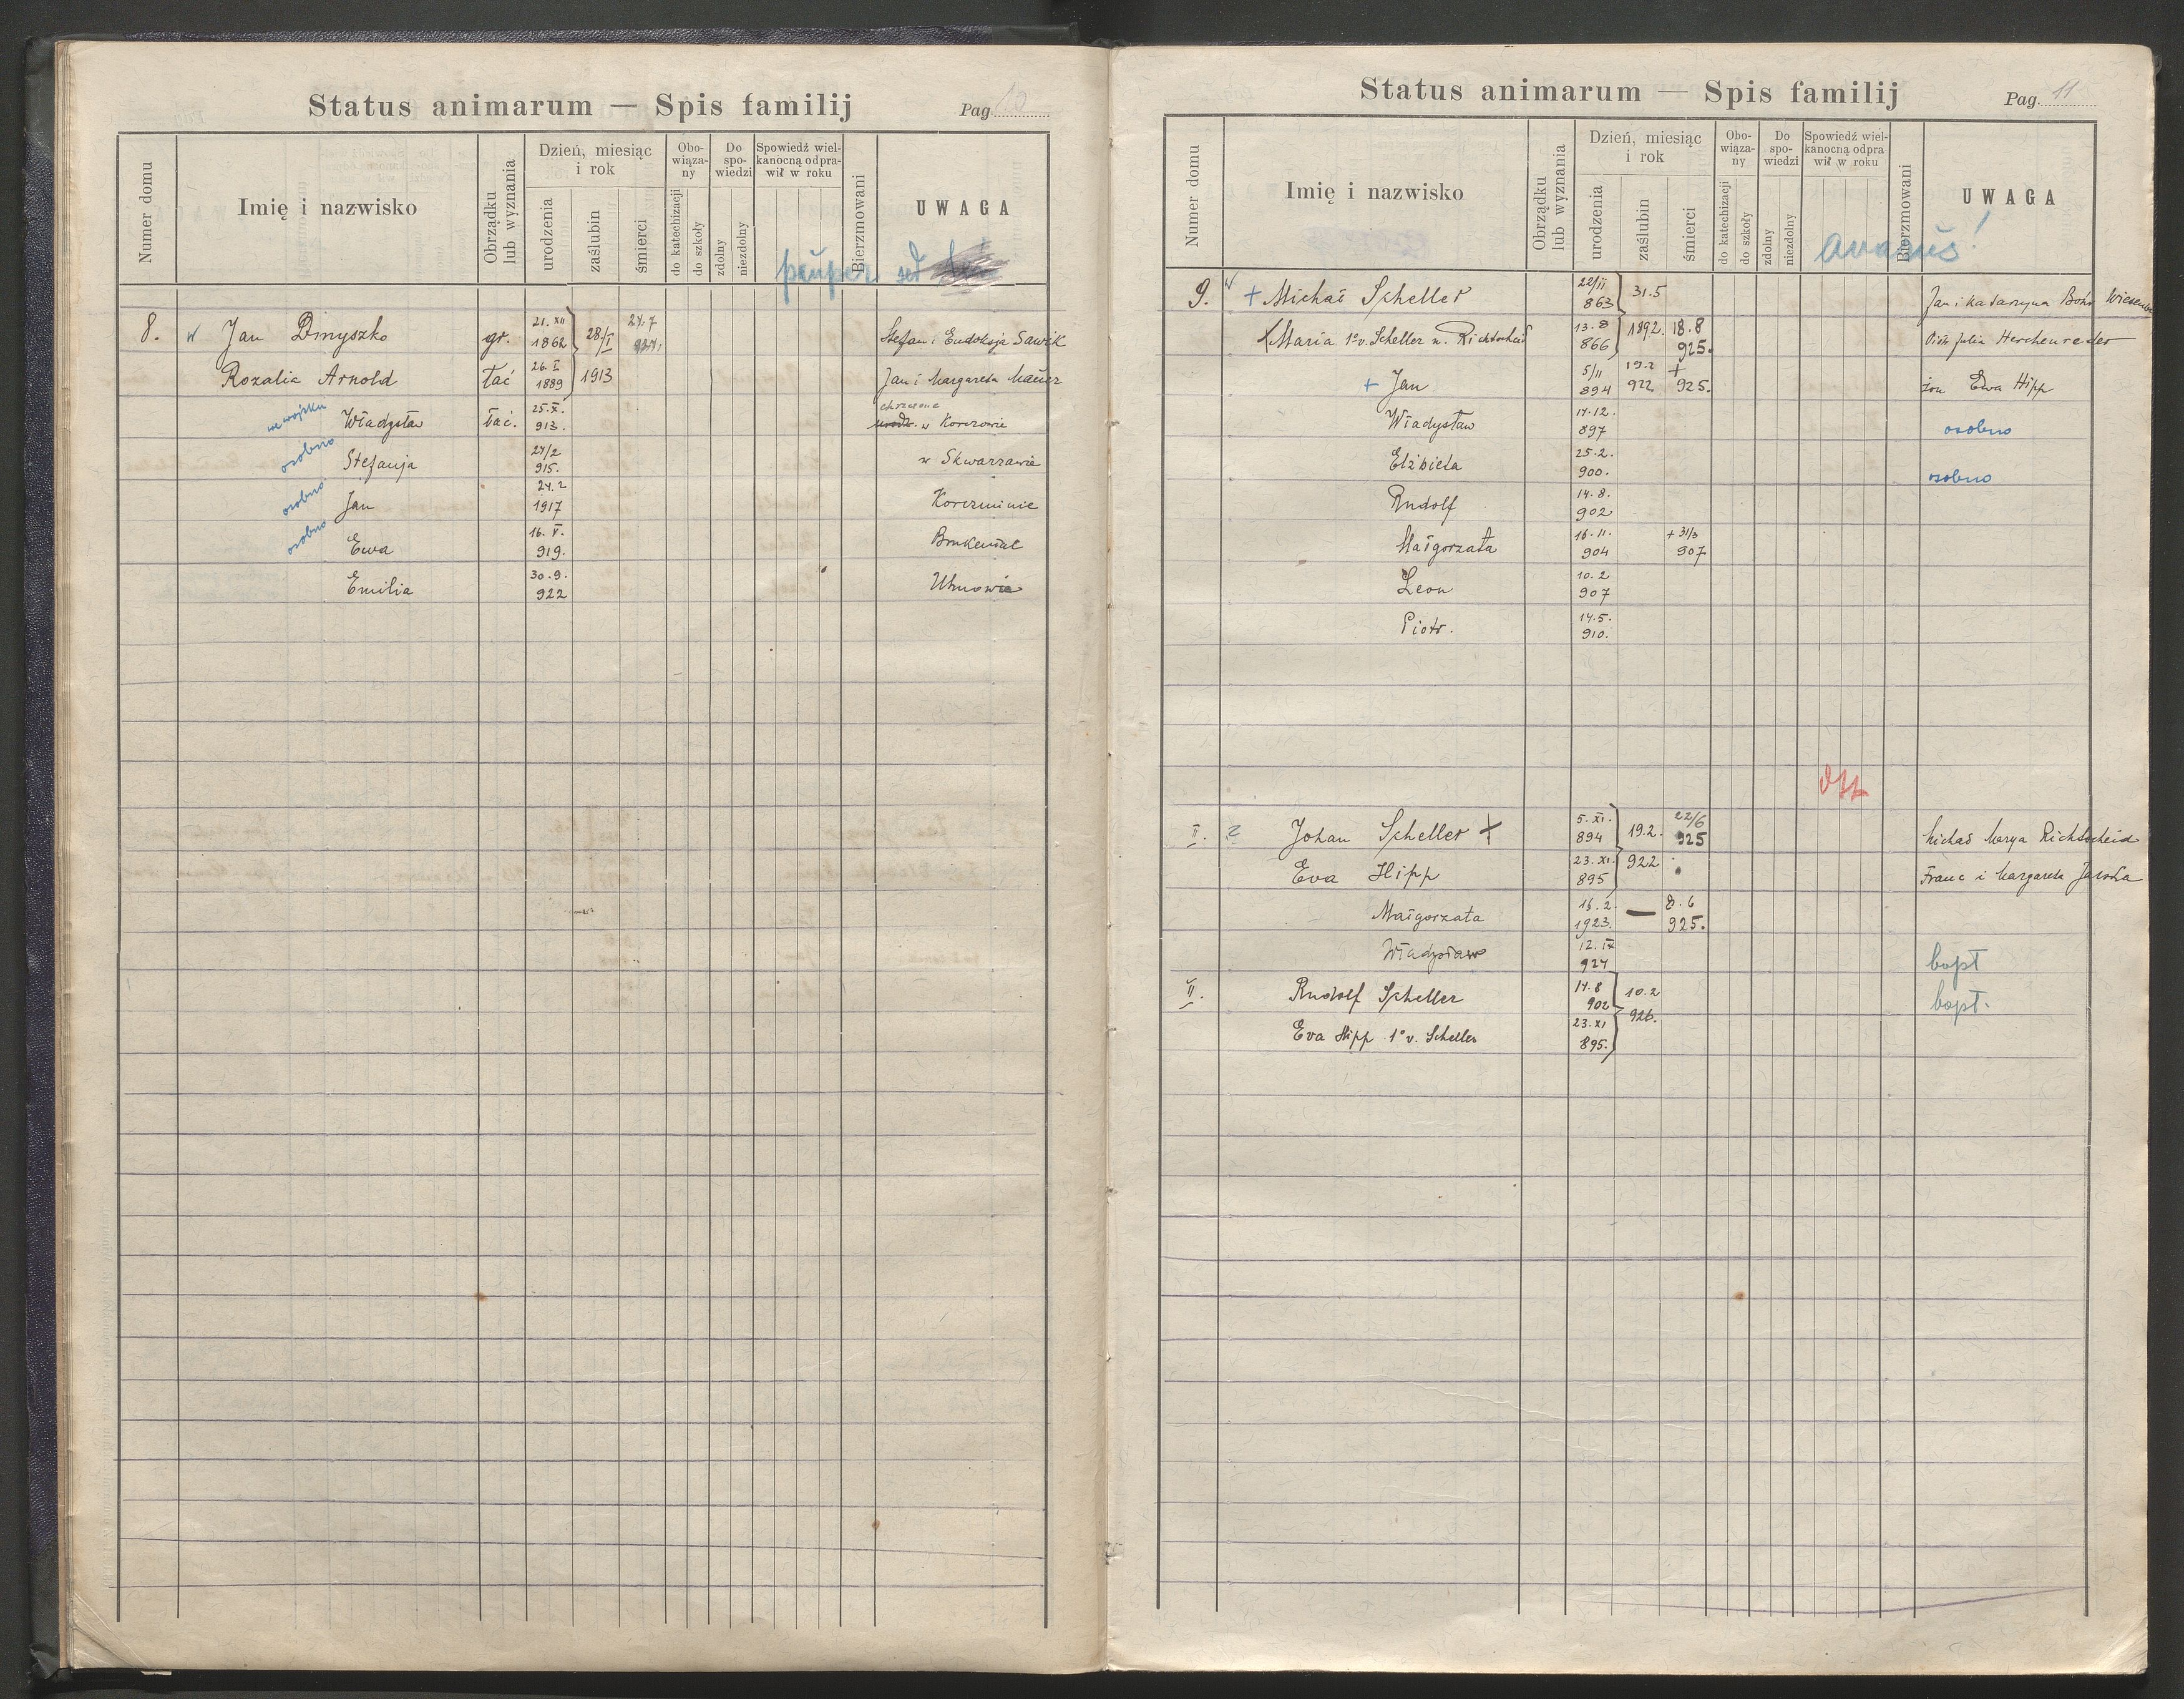 Status animarum — Spis familij
Pag. 10
Numer domu
Imię i nazwisko
Obrządku lub wyznania
Dzień, miesiąc i rok
urodzenia
zaślubin
śmierci
Obo-wiąza-ny
do katechizacji
do szkoły
Do spo-wiedzi
zdolny
niezdolny
Spowiedź wiel-kanocną odpra-wił w roku
Bierzmowani
UWAGA
pauper sed
8. w Jan Dmyszko gr. 21. XII 1862 28/I 24.7 Stefan i Eudoksja Sawik
Rozalia Arnold łać 26. I 1889 1913 Jan i Margareta Mauer
we wojsku Władysław łać. 25. X. 913. chrzczone w Korczowie
osobno Stefanja 24/2 915. w Skwarzawie
osobno Jan 24.2 1917 Korczminie
osobno Ewa 16. V. 919. Brukental
Emilia 30.9. 922 Uhnowie
Status animarum — Spis familij
Pag. 11
Numer domu
Imię i nazwisko
Obrządku lub wyznania
Dzień, miesiąc i rok
urodzenia
zaślubin
śmierci
Obo-wiąza-ny
do katechizacji
do szkoły
Do spo-wiedzi
zdolny
niezdolny
Spowiedź wiel-kanocną odpra wił w roku
Bierzmowani
UWAGA
avarus!
9. w + Michał Scheller 22/II 863 31.5 Jan i Katarzyna
Maria 1º v. Scheller n. Richtscheid 13.8 866 1892. 18.8 925. Piotr Julia Herchenreder
+ Jan 5/11 894 19.2 922 + 925. żon Ewa Hipp
Władysław 14.12. 897 osobno
Elżbieta 25.2. 900. osobno
Rudolf 14.8. 902
Małgorzata 16.11. 904 + 31/3 907
Leon 10.2 907
Piotr. 14.5. 910.
II. 2 Johan Scheller + 5. XI. 894 19.2. 22/6 925 Michał Marya Richtscheid
Eva Hipp 23. XI. 895 922 Franc i Margareta
Małgorzata 16.2. 1923. — 8.6 925.
Władysław 12. IX 924 bapt
II. Rudolf Scheller 14.8 902 10.2 bapt.
Eva Hipp 1º v. Scheller 23. XI 895. 926.